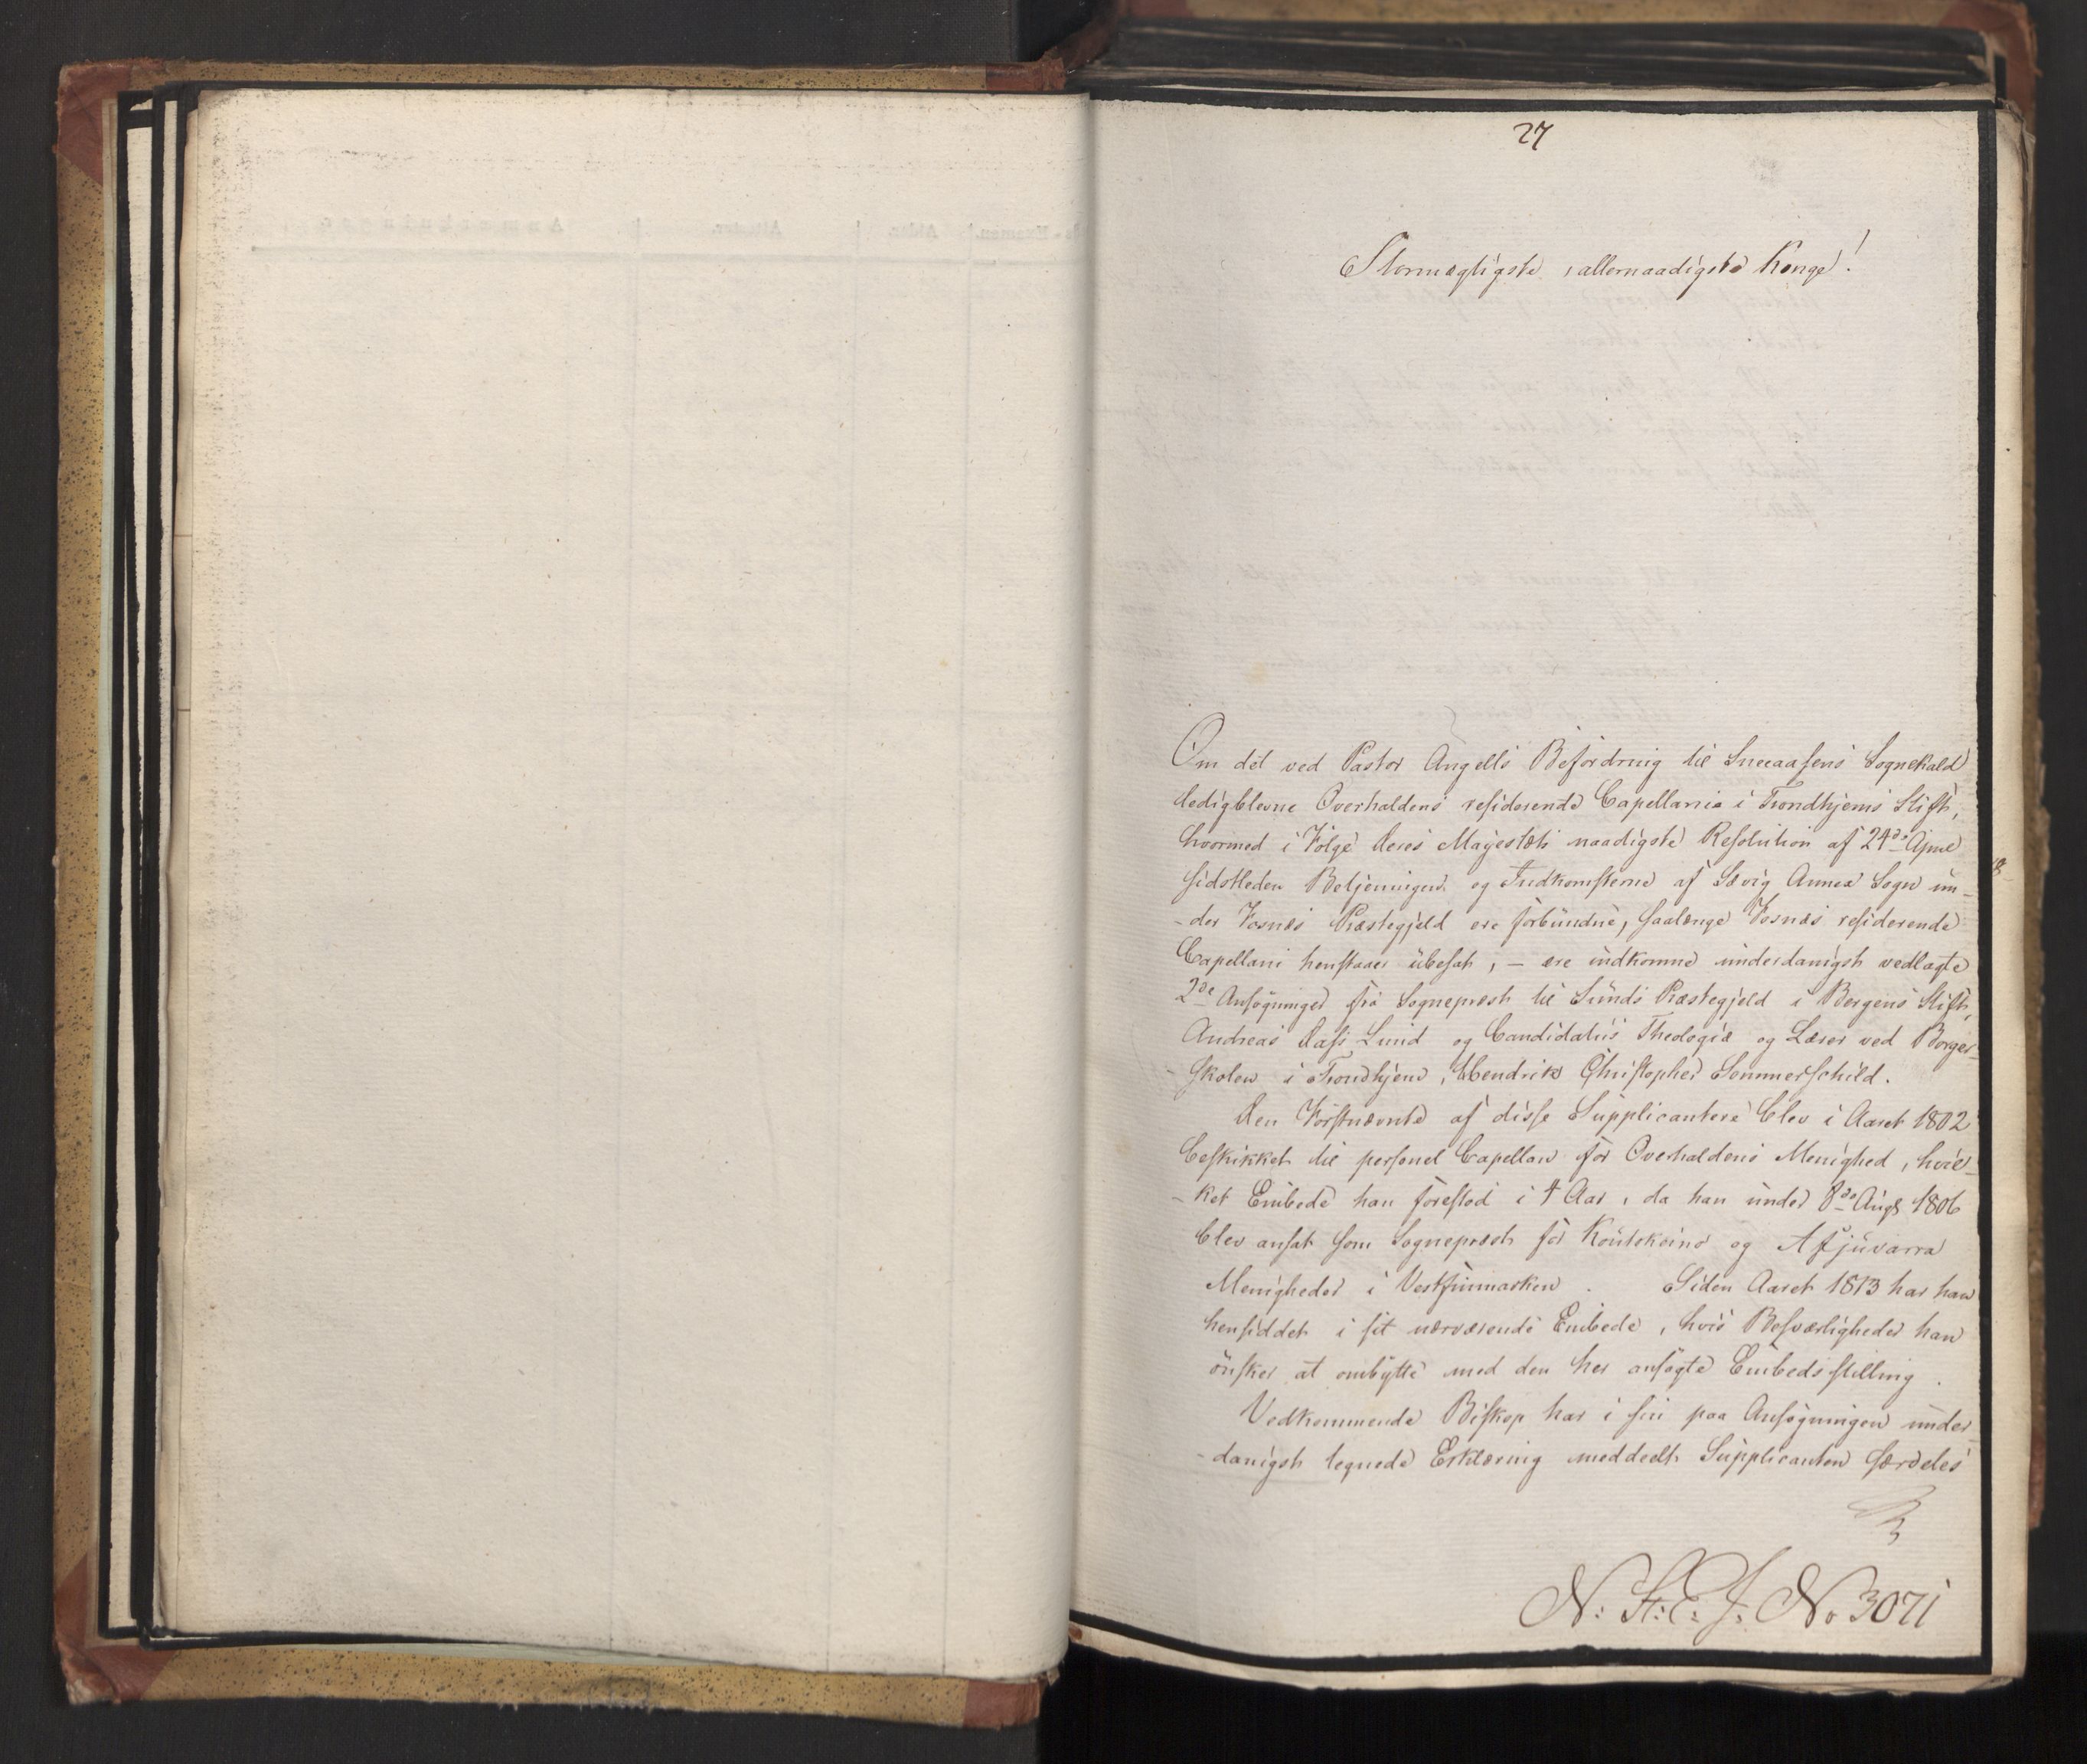 27
Stormægtigste, allernaadigste Konge!
Om det ved Pastor Angells Befordring til Sneeaasens Sognekald
ledigblevne Overhaldens residerende Capellanie i Trondhjems Stift,
hvormed i Følge Deres Majestæts naadigste Resolution af 24de April
sidstleden Betjeningen og Indkomsterne af Sævig Annex Sogn un-
-der Fosnæs Præstegjeld ere forbundne, saalænge Fosnæs residerende
Capellani henstaaer ubesat, - ere indkomne underdanigst vedlagte
2de Ansøgninger fra Sognepræst til Sunds Præstegjeld i Bergens Stift,
Andreas Dass Lund og Candidatus Theologiæ og Lærer ved Borger-
-skolen i Trondhjem, Hendrik Christopher Sommerschild.
Den Førstnævnte af disse Supplicantere blev i Aaret 1802
beskikket til personel Capellan for Overhaldens Menighed, hvil-
-ket Embede han forestod i 4 Aar, da han under 8de Augs 1806
blev ansat som Sognepræst for Koutokeino og Afjuvarra
Menigheder i Vestfinmarken. Siden Aaret 1813 har han
hensiddet i sit nærværende Embede, hvis Besværligheder han
ønsker at ombytte med den her ansøgte Embedsstilling.
Vedkommende Biskop har i sin paa Ansøgningen under-
-danigst tegnede Erklæring meddeelt Supplicanten særdeles
N: St: E: J: No 3071